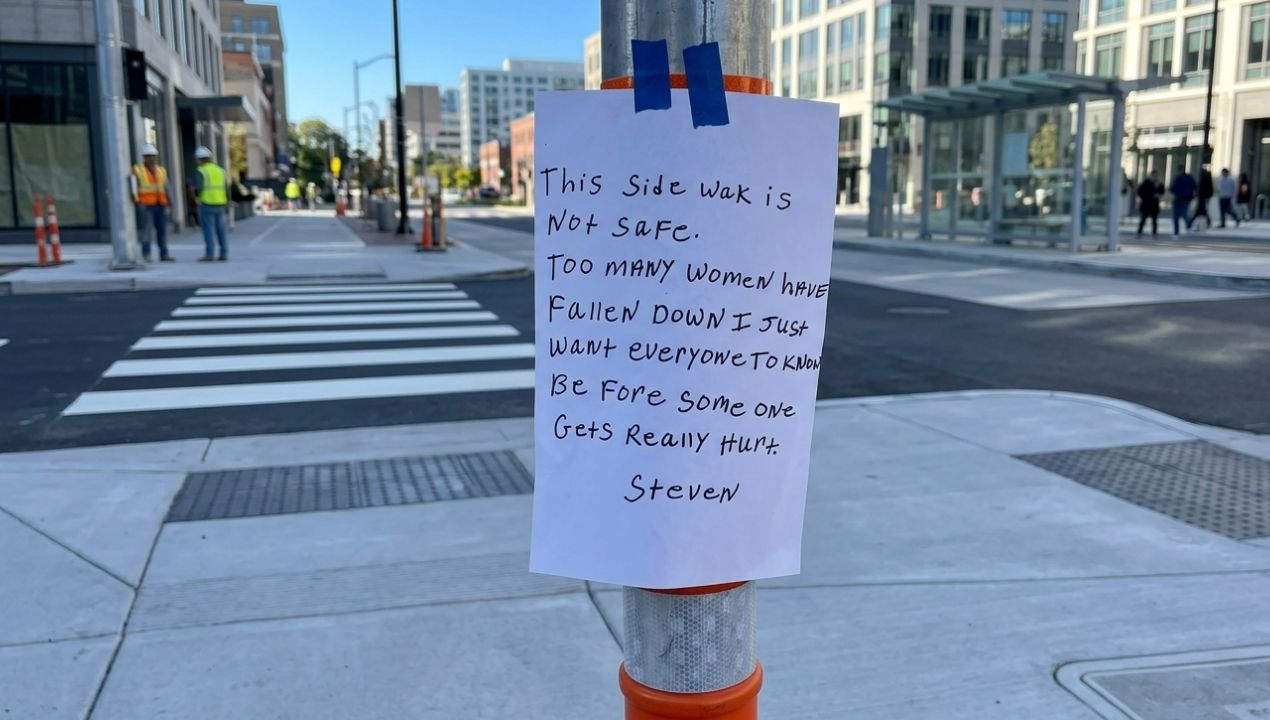 This Side wak is
Not safe.
Too MANY WomeN HAVE
FalleN DowN I Just
Want everyone To KNOW
Be Fore Some oNe
Gets Really Hurt.
SteveN